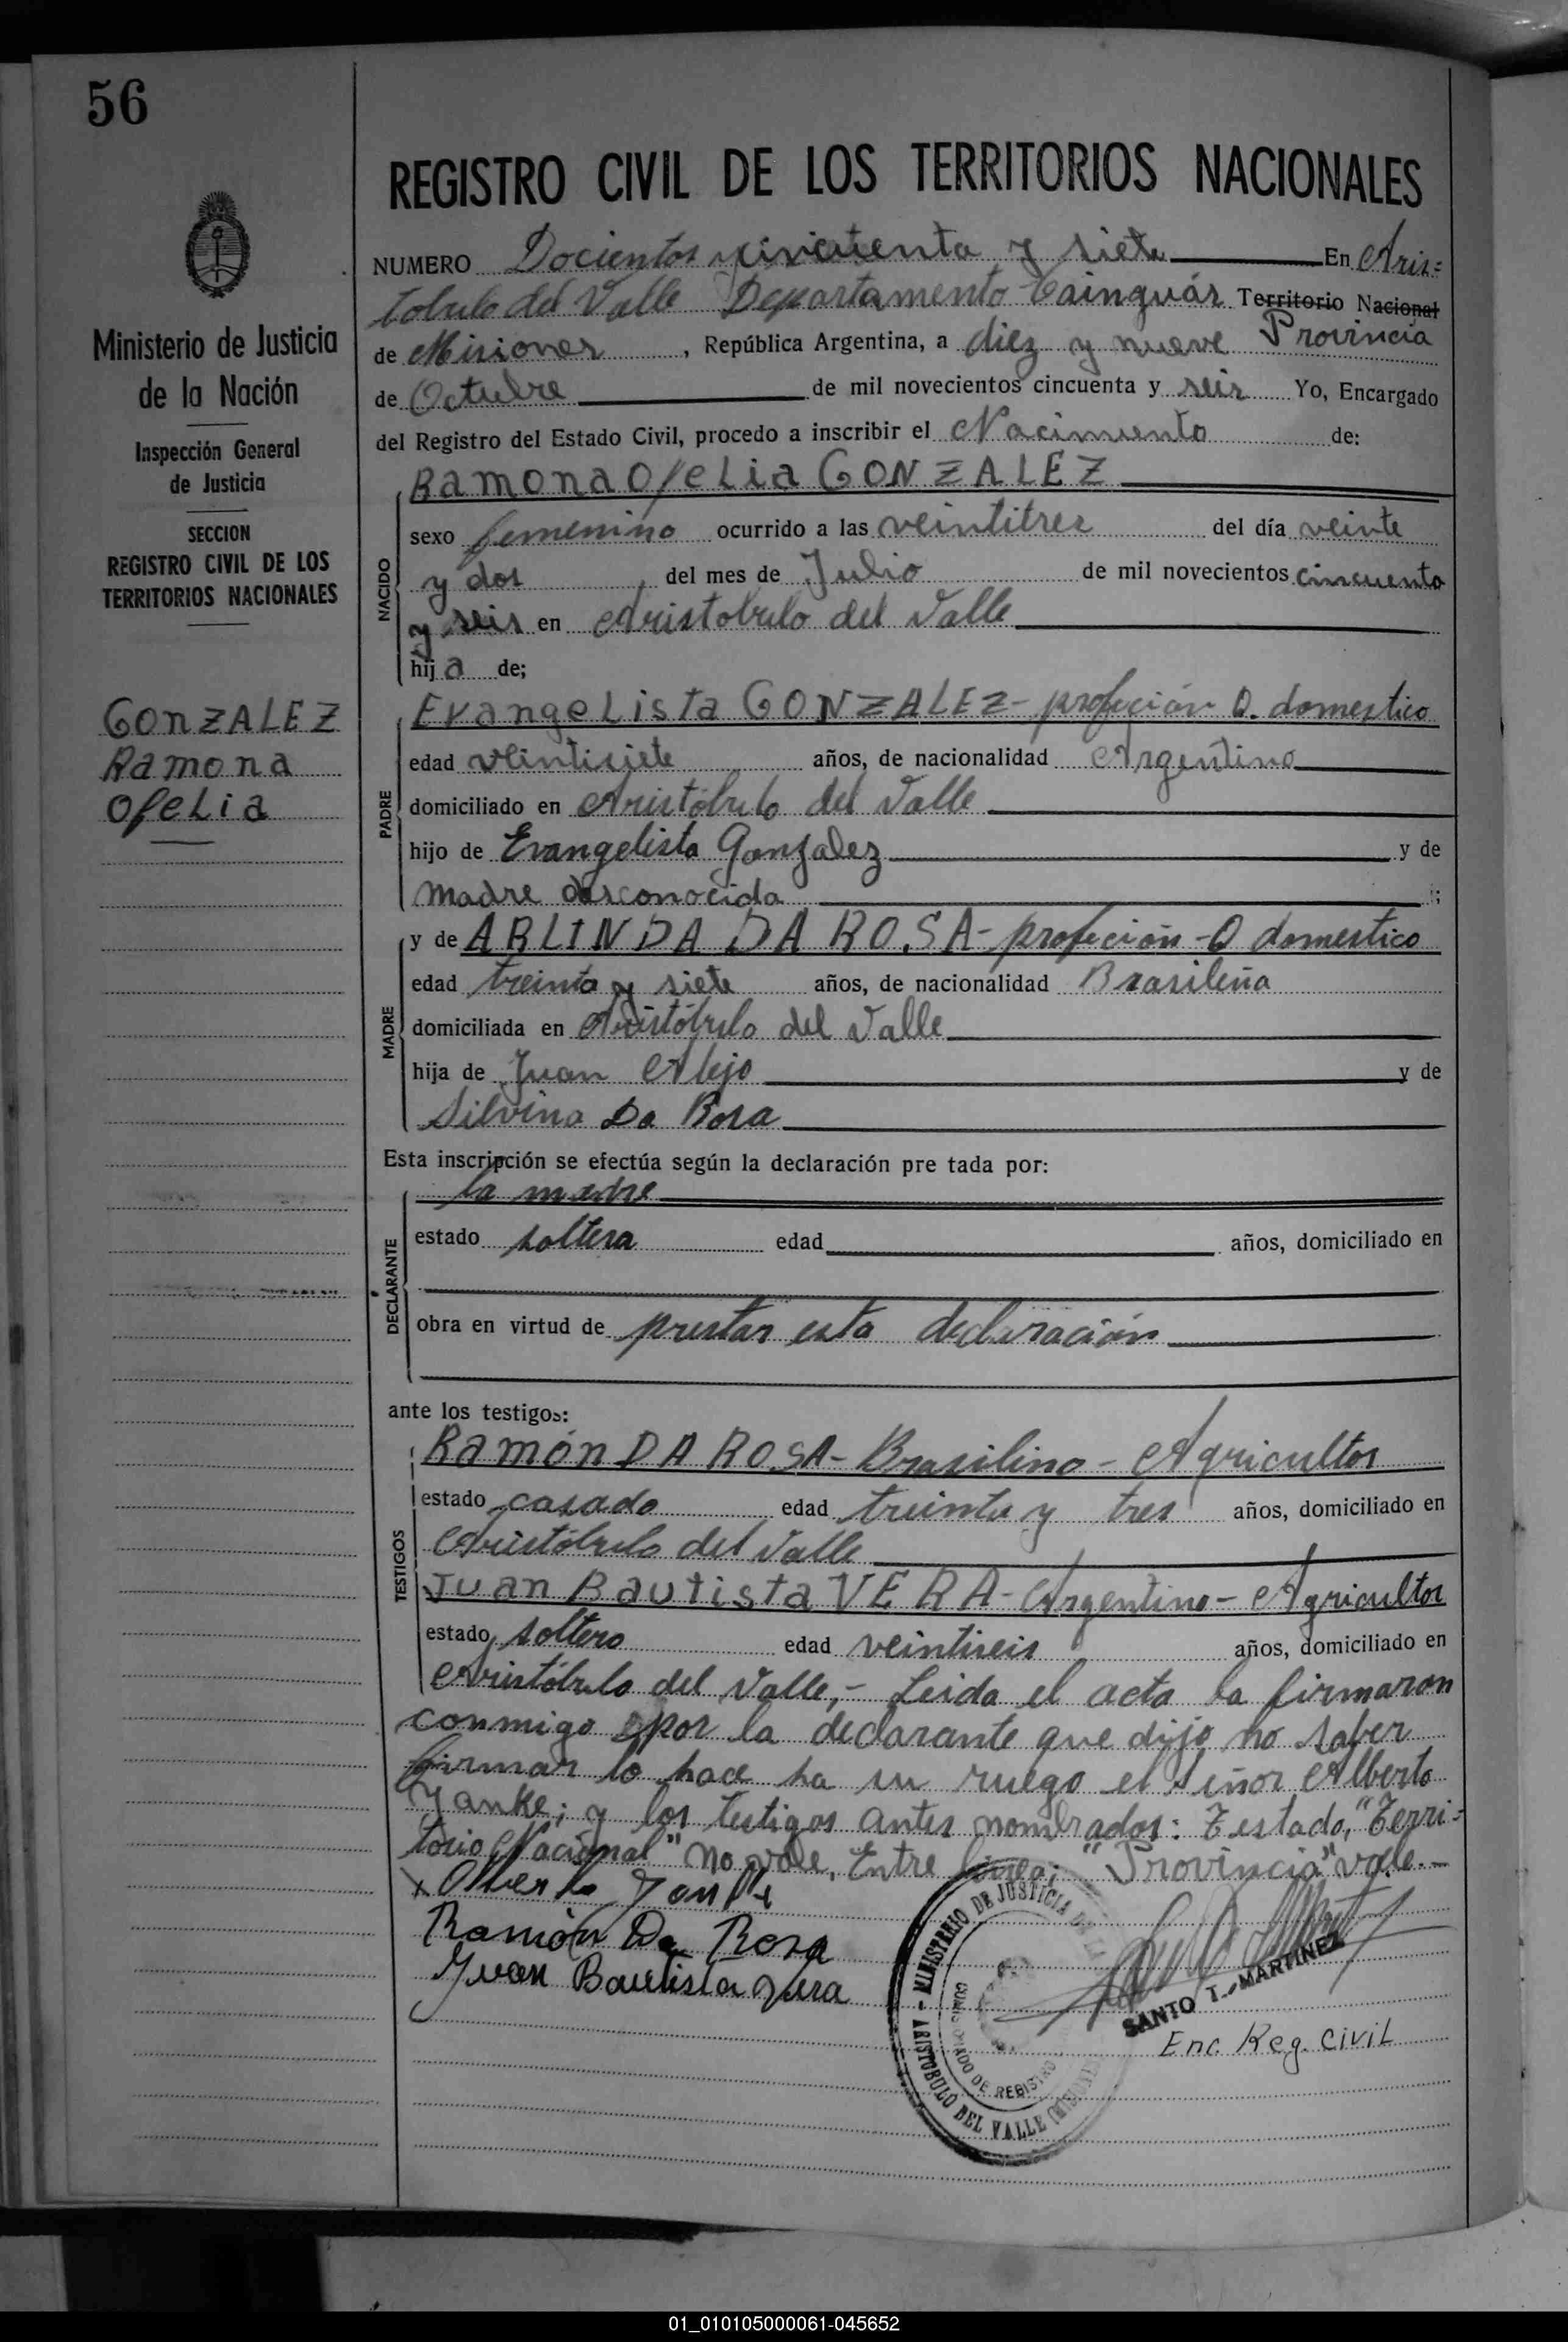 56
Ministerio de Justicia
de la Nación
Inspección General
de Justicia
SECCION
REGISTRO CIVIL DE LOS
TERRITORIOS NACIONALES
GONZALEZ
Ramona
Ofelia
REGISTRO CIVIL DE LOS TERRITORIOS NACIONALES
NUMERO Docientos cincuenta y siete En Aris=
tobulo del Valle Departamento Cainguás Territorio Nacional
de Misiones, República Argentina, a diez y nueve Provincia
de Octubre de mil novecientos cincuenta y seis Yo, Encargado
del Registro del Estado Civil, procedo a inscribir el Nacimiento de:
NACIDO
Ramona Ofelia GONZALEZ
sexo femenino ocurrido a las veintitres del día veinte
y dos del mes de Julio de mil novecientos cincuenta
y seis en Aristobulo del Valle
hija de;
PADRE
Evangelista GONZALEZ- profeción Q. domestico
edad veintisiete años, de nacionalidad Argentino
domiciliado en Aristóbulo del Valle
hijo de Evangelista Gonzalez y de
madre desconocida ;
MADRE
y de ARLINDA DA ROSA- profeción -Q domestico
edad treinta y siete años, de nacionalidad Brasileña
domiciliada en Aristóbulo del Valle
hija de Juan Alejo y de
Silvina Da Rosa
Esta inscripción se efectúa según la declaración pre tada por:
DECLARANTE
la madre
estado soltera edad años, domiciliado en
obra en virtud de prestar esta declaración
ante los testigos:
TESTIGOS
Ramón DA ROSA- Brasilino - Agricultor
estado casado edad treinta y tres años, domiciliado en
Aristóbulo del Valle
Juan Bautista VERA- Argentino- Agricultor
estado soltero edad veintiseis años, domiciliado en
Aristóbulo del Valle,- Leida el acta la firmaron
conmigo por la declarante que dijo no saber
firmar lo hace ha su ruego el señor Alberto
Yanke; y los testigos antes nombrados: Testado, "Terri=
torio Nacional" no vale, Entre linea; "Provincia" vale.-
x Alberto Yanke
Ramón Da Rosa
Juan Bautista Vera
MINISTERIO DE JUSTICIA DE LA
ARISTOBULO DEL VALLE
DE REGISTRO
SANTO T. MARTINEZ
Enc. Reg. Civil
01_010105000061-045652